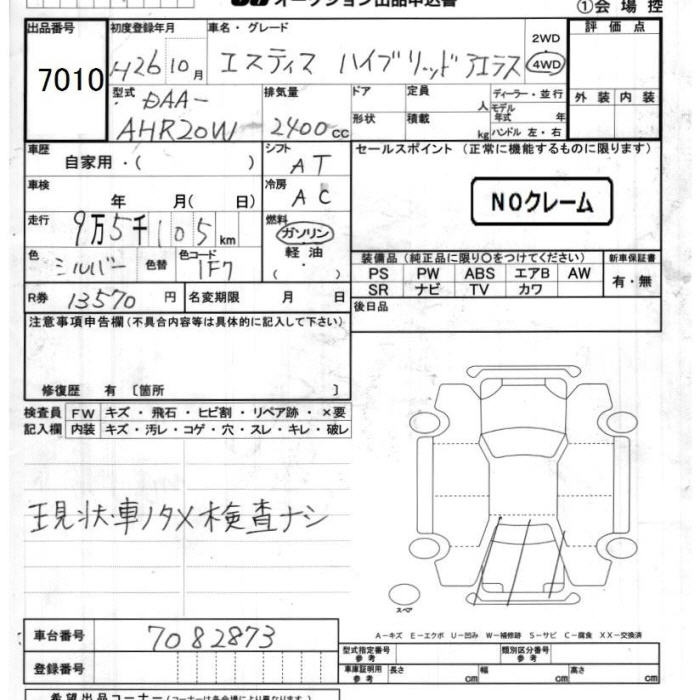 オークション出品申込書 ①会場控
出品番号 初度登録年月 車名・グレード 評価点
7010 H26 10月 エスティマ ハイブリッド アエラス 2WD 4WD
型式 排気量 ドア 定員 人 ディーラー・並行 外装 内装
DAA-
AHR20W 2400cc 形状 積載 kg モデル年式 年 ハンドル 左・右
車歴 シフト セールスポイント (正常に機能するものに限ります)
自家用・( ) AT
車検 冷房 NOクレーム
年 月( 日) AC
走行 燃料
9万5千105km ガソリン
色 色替 色コード 軽油 装備品(純正品に限り○をつけてください) 新車保証書
シルバー 1F7 ・( ) PS PW ABS エアB AW 有・無
R券 13570円 名変期限 月 日 SR ナビ TV カワ
注意事項申告欄(不具合内容等は具体的に記入して下さい) 後日品
修復歴 有 〔箇所 〕
検査員 FW キズ・飛石・ヒビ割・リペア跡・×要
記入欄 内装 キズ・汚レ・コゲ・穴・スレ・キレ・破レ
現状車ノタメ検査ナシ
スペア
A-キズ E-エクボ U-凹み W-補修跡 S-サビ C-腐食 XX-交換済
車台番号 7082873 型式指定番号 参考 類別区分番号 参考
登録番号 車庫証明用 参考 長さ cm 幅 cm 高さ cm
希望出品コーナー(コーナーは各会場により異なります。)